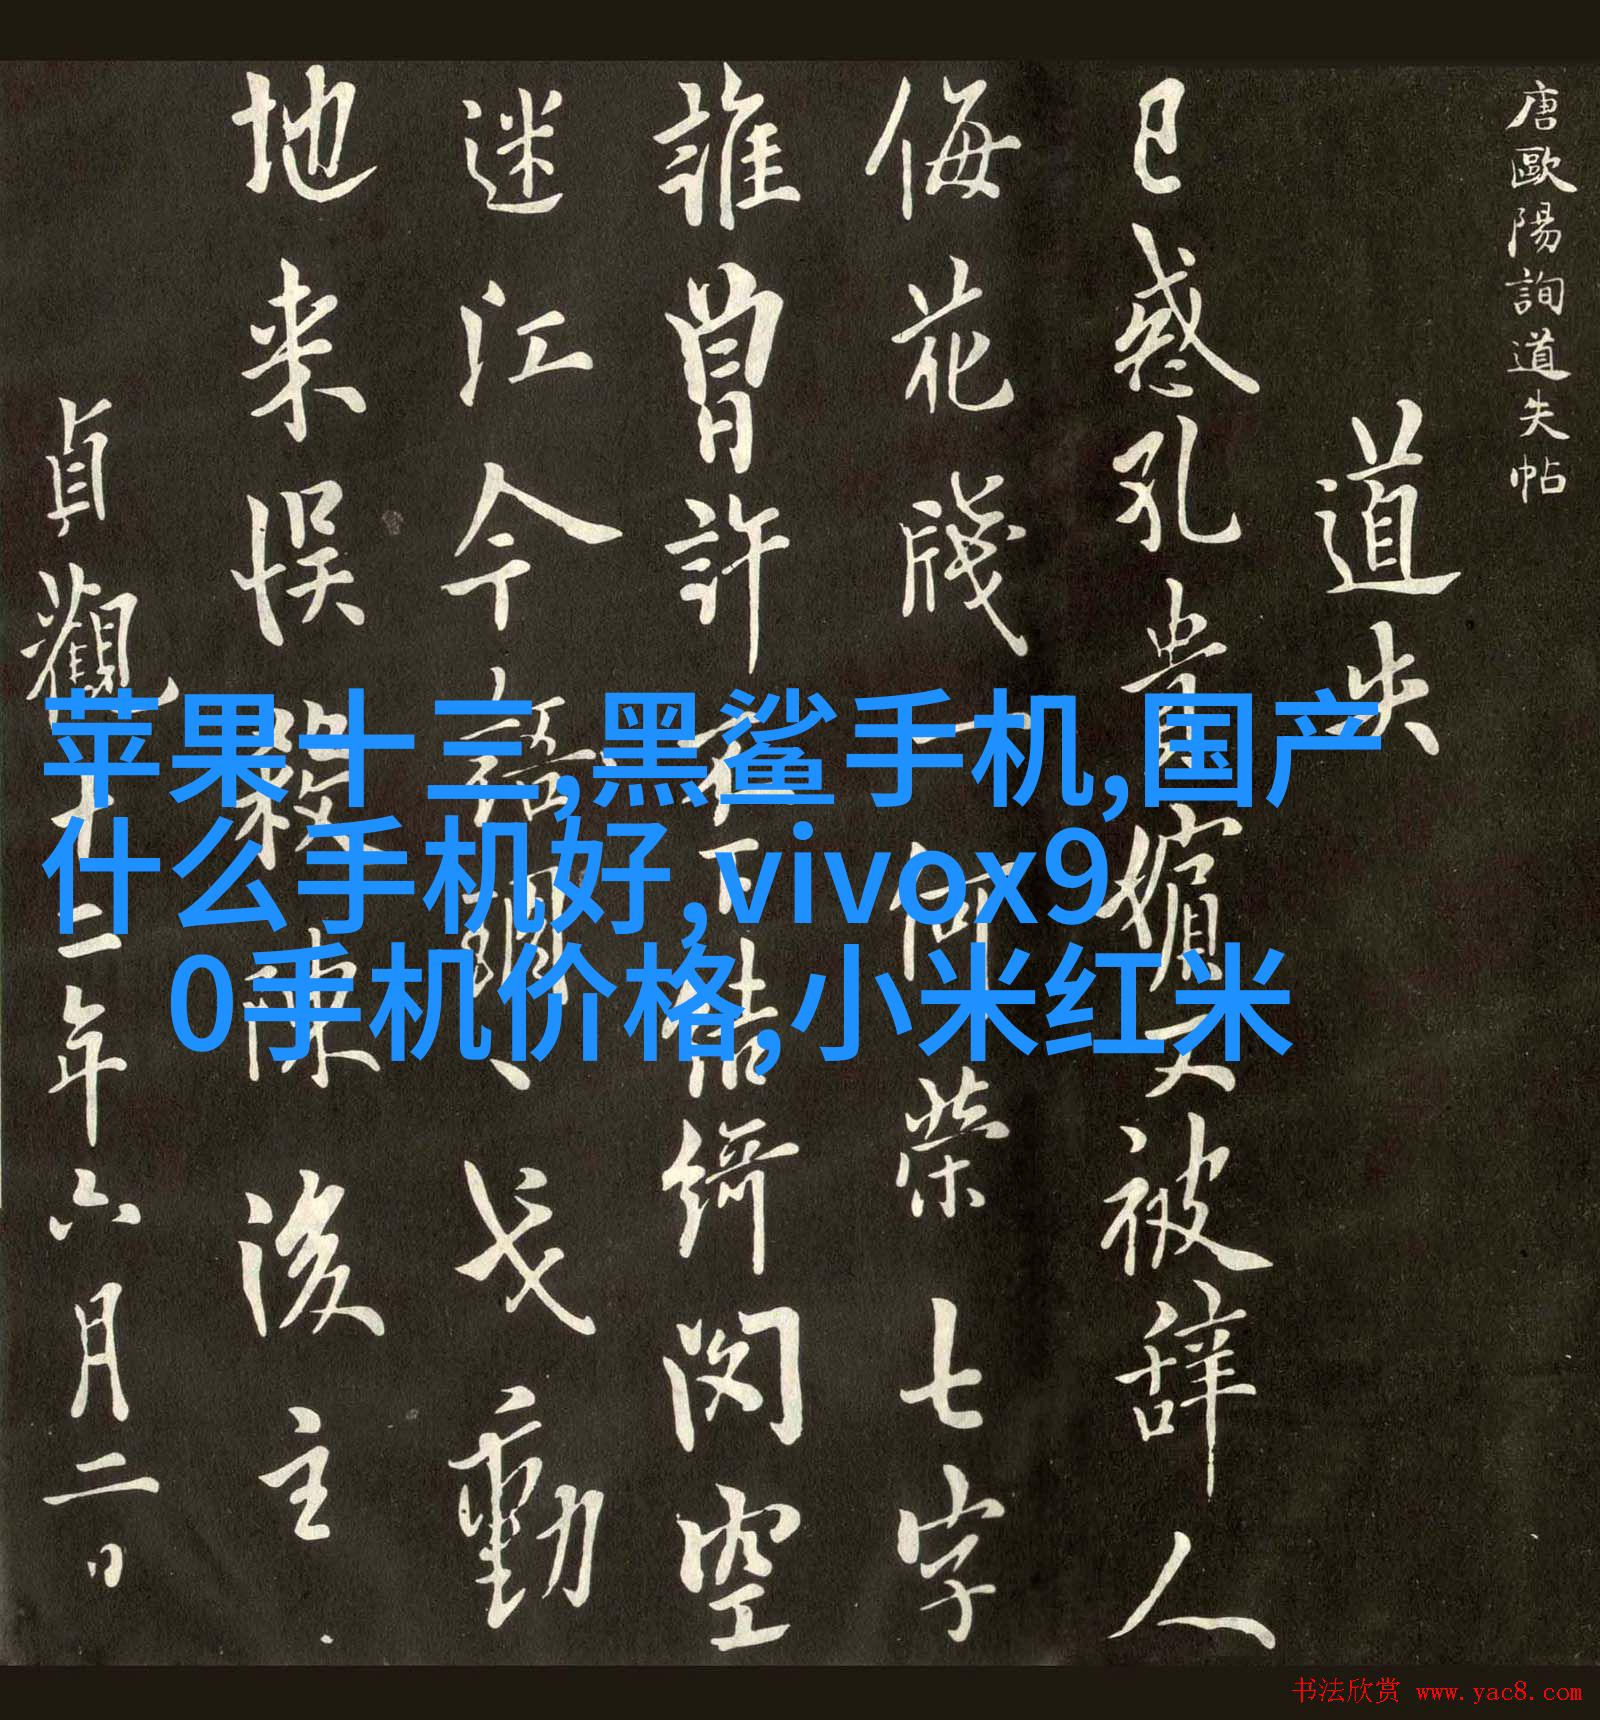 唐歐陽詢道失帖
道失
已惑孔貴嬪又被辭人
侮花牋一何榮七字
誰曾許下結綺閣空
迷江令語戈動
地来悮殺陳後主
貞觀十二年六月二日
苹果十三,黑鲨手机,国产
什么手机好,vivox9
0手机价格,小米红米
书法欣赏 www.yac8.com